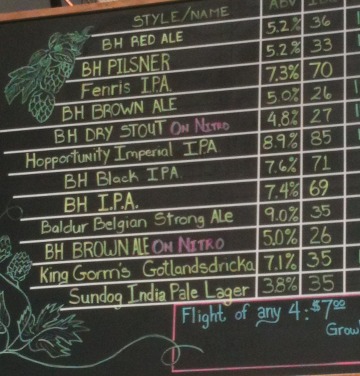 STYLE/NAME ABV
BH RED ALE 5.2% 36
BH PILSNER 5.2% 33
Fenris I.P.A. 7.3% 70
BH BROWN ALE 5.0% 26
BH DRY STOUT ON NITRO 4.8% 27
Hopportunity Imperial I.P.A. 8.9% 85
BH Black I.P.A. 7.6% 71
BH I.P.A. 7.4% 69
Baldur Belgian Strong Ale 9.0% 35
BH BROWN ALE ON NITRO 5.0% 26
King Gorm's Gotlandsdricka 7.1% 35
Sundog India Pale Lager 3.8% 35
Flight of any 4: $7.00
Grow